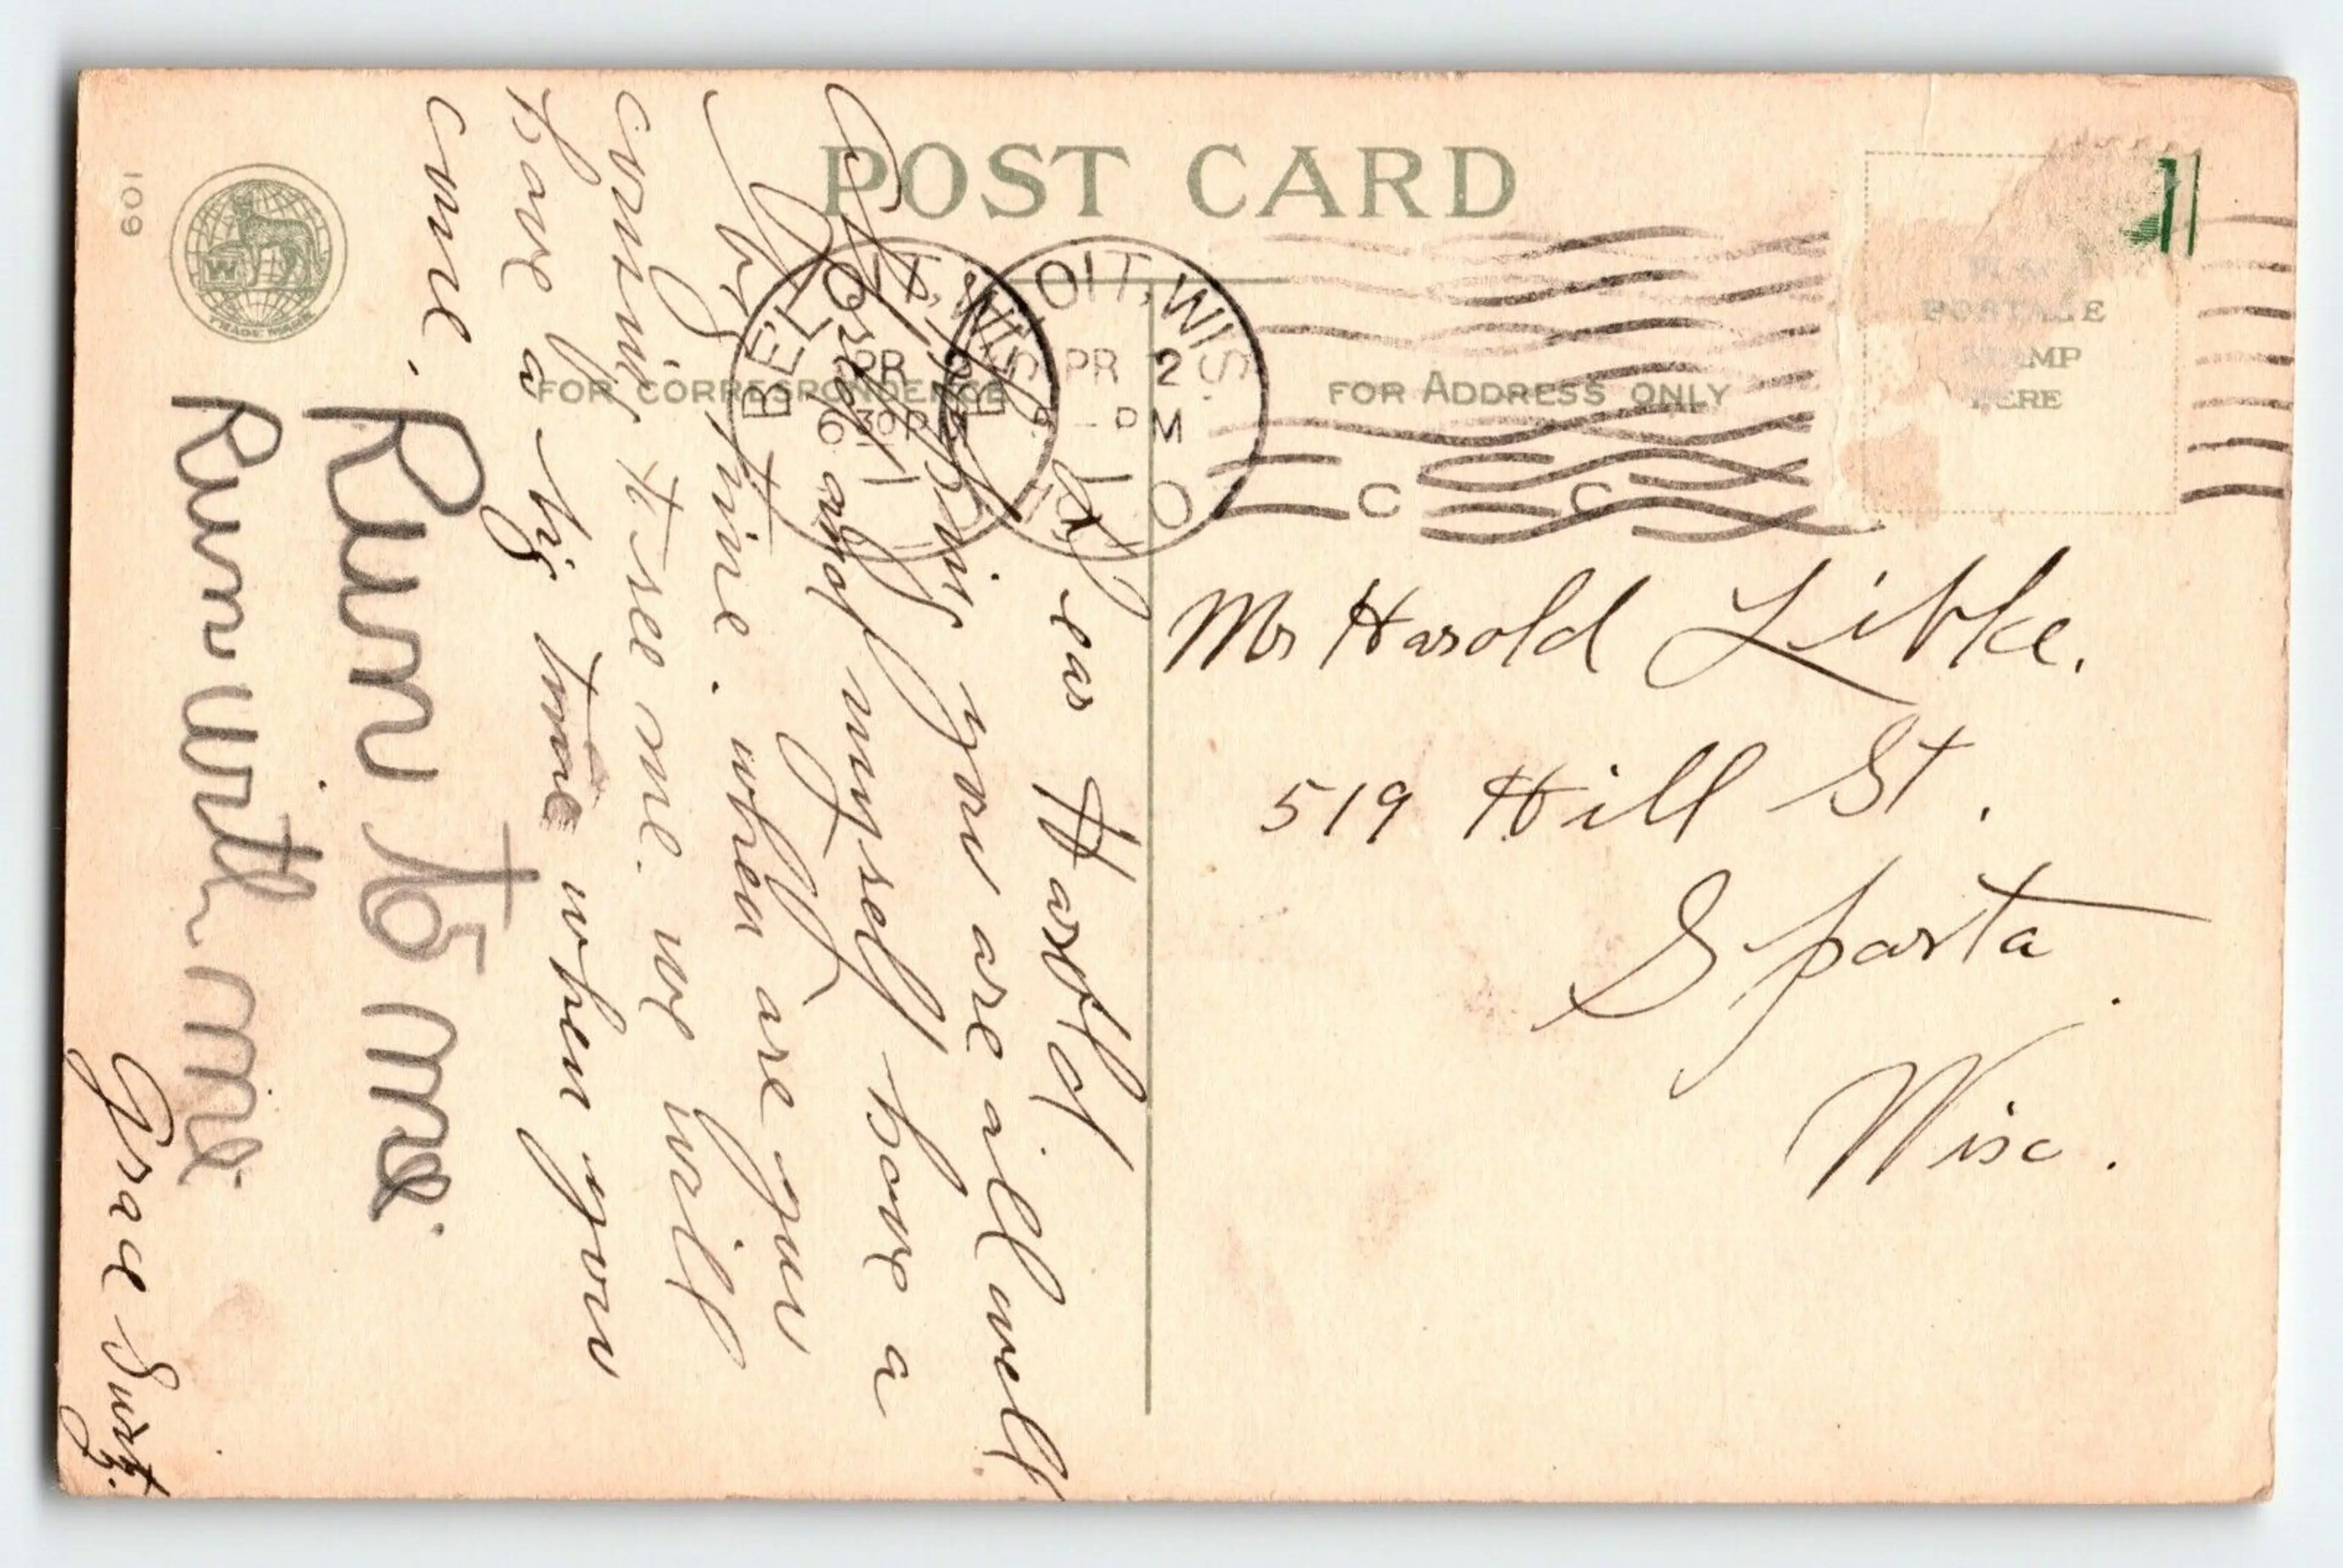 POST CARD
FOR CORRESPONDENCE
FOR ADDRESS ONLY
POSTAGE
STAMP
HERE
BELOIT, WIS.
APR 2
6 30 PM
BELOIT, WIS.
APR 2
- PM
C C
Mr Harold Libke.
519 Hill St.
Sparta.
Wisc.
Dear Harold
Hoping you are all well
Cora and myself have a
big time. when are you
coming to see me. we will
have a big time when you
come.
Run to me
Run with me
Grace Swart.
109
W
TRADE MARK